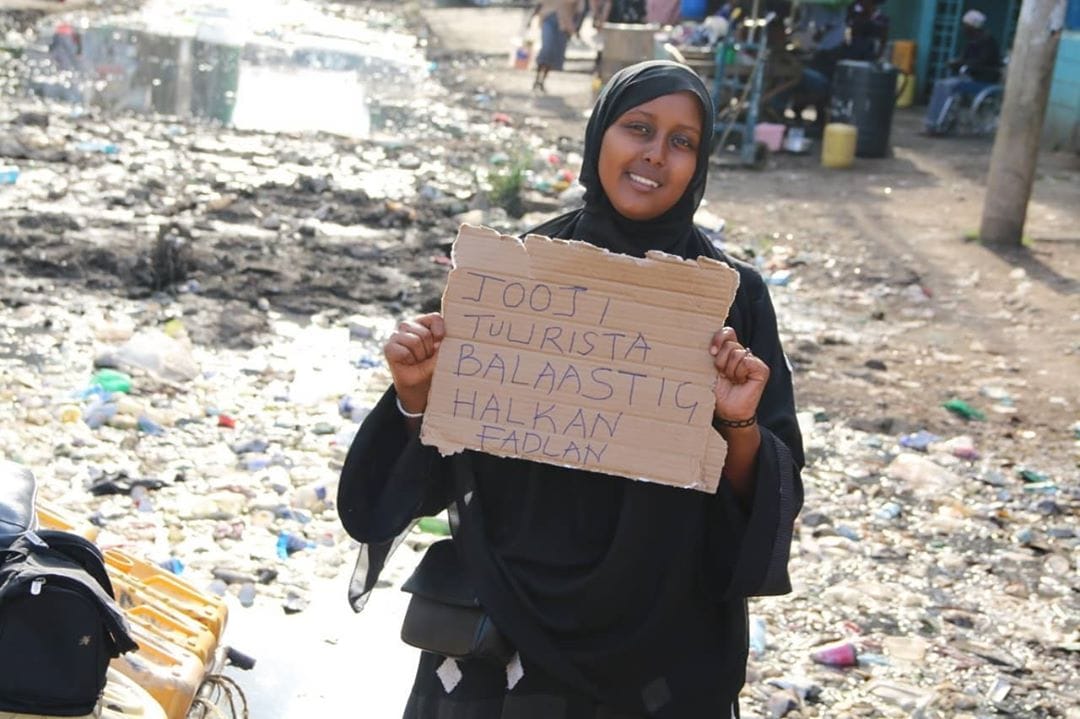 JOOJI
TUURISTA
BALAASTIG
HALKAN
FADLAN